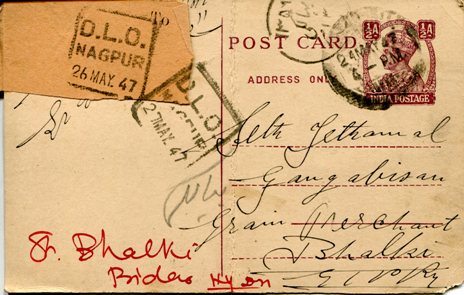 To
D.L.O.
NAGPUR
26 MAY. 47
D.L.O.
NAGPUR
27 MAY. 47
POST CARD
ADDRESS ONLY
½A ½A
INDIA POSTAGE
Seth Jethamal
Gangabisan
Grain Merchant
Bhalki
Sr. Bhalki
Bidar Hyd